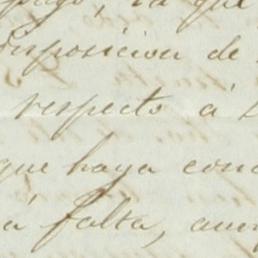 pago, la que
disposicion de
respecto á
que haya
á falta,